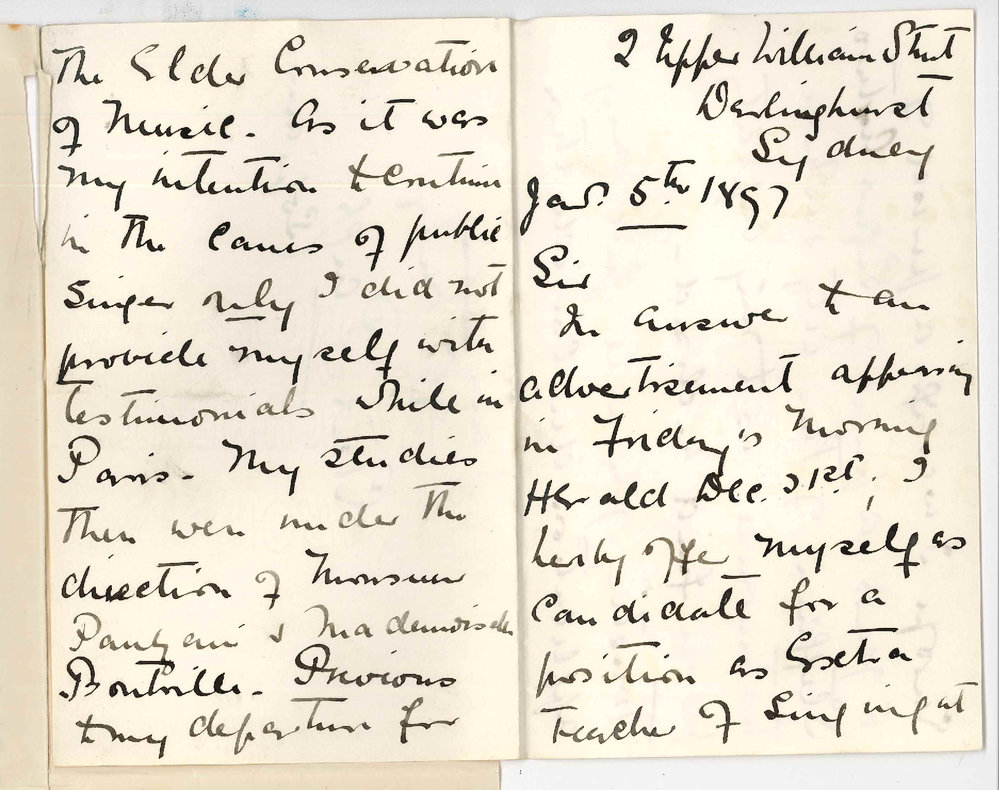 2 Upper William Street
Darlinghurst
Sydney
Jan. 5th 1897
Sir
In answer to an
advertisement appearing
in Friday's Morning
Herald Dec. 31st, I
hereby offer myself as
Candidate for a
position as Extra
teacher of Singing at
The Elder Conservatoire
of Music. As it was
my intention to continue
in the career of public
Singer only I did not
provide myself with
testimonials while in
Paris. My studies
there were under the
direction of Monsieur
& Mademoiselle
Previous
to my departure for